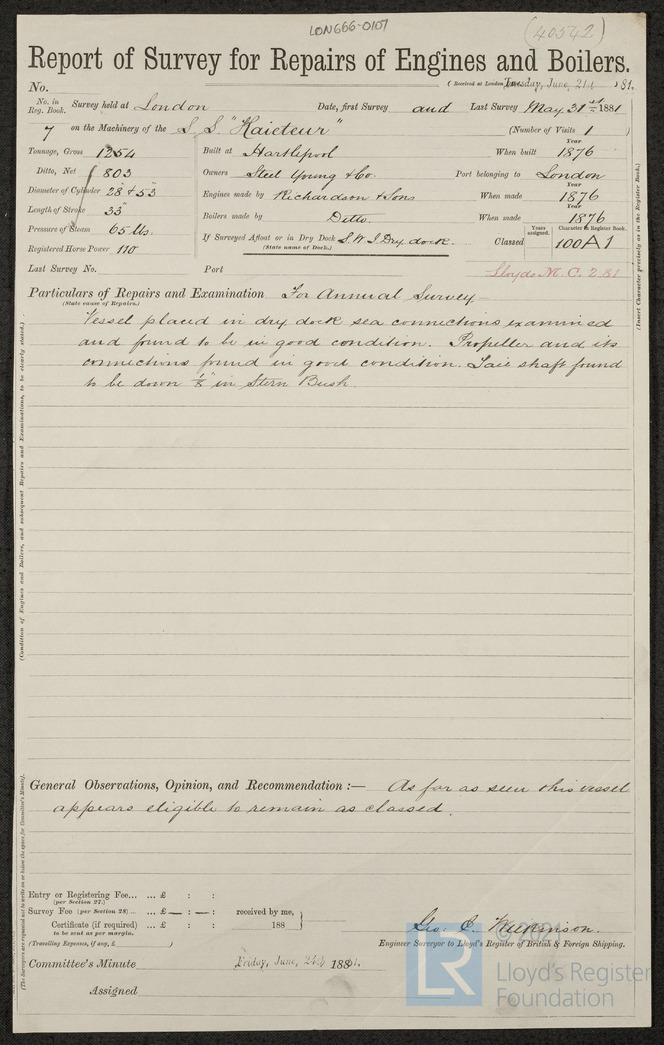 LON666-0107
(40542)
Report of Survey for Repairs of Engines and Boilers.
No. (Received at London Tuesday, June, 21st 1881.
No. in Reg. Book. Survey held at London Date, first Survey and Last Survey May 31st 1881
7 on the Machinery of the S.S. "Kaieteur" (Number of Visits 1 )
Tonnage, Gross 1254 Built at Hartlepool When built Year 1876
Ditto, Net 803 Owners Steel Young & Co. Port belonging to London
Diameter of Cylinder 28" & 53" Engines made by Richardson & Sons When made Year 1876
Length of Stroke 33" Boilers made by Ditto. When made Year 1876
Pressure of Steam 65 lbs. If Surveyed Afloat or in Dry Dock S.W.I Dry dock. Classed Years assigned. Character in Register Book. 100A1
Registered Horse Power 110 (State name of Dock.)
Last Survey No. Port Lloyds M.C. 2.81
Particulars of Repairs and Examination For Annual Survey
(State cause of Repairs.)
Vessel placed in dry dock sea connections examined
and found to be in good condition. Propeller and its
connections found in good condition. Tail shaft found
to be down 1/8" in Stern Bush.
(Insert Character precisely as in the Register Book.)
(Condition of Engines and Boilers, and subsequent Repairs and Examinations, to be clearly stated.)
General Observations, Opinion, and Recommendation :— As far as seen this vessel
appears eligible to remain as classed.
(The Surveyors are requested not to write on or below the space for Committee's Minute).
Entry or Registering Fee... ... £ : :
(per Section 27.)
Survey Fee (per Section 28) ... ... £ — : — : received by me,
Certificate (if required) ... £ : : 188
to be sent as per margin.
(Travelling Expenses, if any, £ )
Geo. C. Wilkinson.
Engineer Surveyor to Lloyd's Register of British & Foreign Shipping.
Committee's Minute Friday, June, 24th 1881.
Assigned
© 2021
LR
Lloyd's Register
Foundation